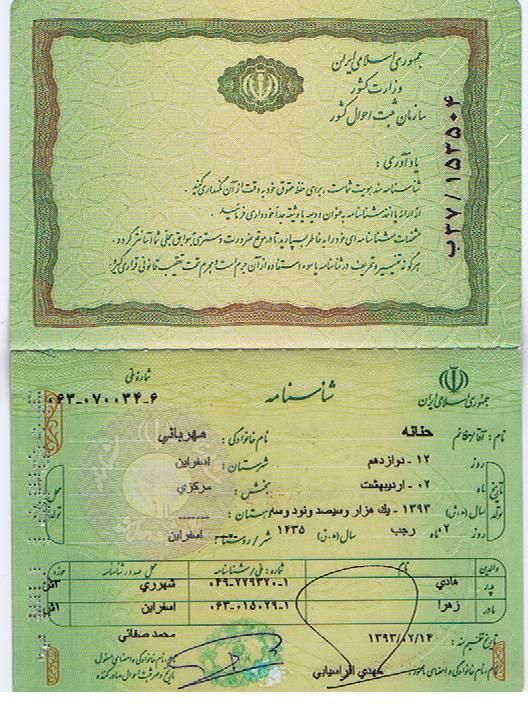 جمهوری اسلامی ایران
وزارت کشور
سازمان ثبت احوال کشور
ب۳۷/۱۵۳۵۰۴
یادآوری :
شناسنامه سند هویت شماست ، برای حفظ حقوق خود به دقت از آن نگهداری کنید .
از ارائه یا اخذ شناسنامه به عنوان ودیعه یا وثیقه جداً خودداری فرمائید .
مشخصات شناسنامه ای خود را به خاطر بسپارید تا در موقع ضرورت دسترسی به سوابق سجلی شما آسانتر گردد .
هرگونه تغییر و تحریف در شناسنامه یا سوء استفاده از آن جرم است و مجرم تحت تعقیب قانونی قرار می گیرد .
جمهوری اسلامی ایران
شناسنامه
شماره ملی
۰۶۳-۰۷۰۰۳۴-۶
نام : آقا/خانم حنانه نام خانوادگی : مهربانی
تاریخ تولد روز ۱۲- دوازدهم محل تولد شهرستان : اسفراین
ماه ۰۲- اردیبهشت بخش : مرکزی
سال (ه.ش) ۱۳۹۳- یک هزار و سیصد و نود و سه دهستان :
روز ۰۲ ماه رجب سال (ه.ق) ۱۴۳۵ شهر / روستا : اسفراین
والدین نام شماره : ملی / شناسنامه محل صدور شناسنامه حوزه
پدر هادی ۰۴۹-۲۲۹۳۲۰-۱ شهرری
مادر زهرا ۰۶۳-۰۱۵۰۲۹-۱ اسفراین
تاریخ تنظیم سند : ۱۳۹۳/۰۲/۱۴ محمد صفائی
نام، نام خانوادگی و امضای مامور : مهدی افراسیابی نام، نام خانوادگی و امضای مسئول
تاریخ و مهر ثبت احوال صادرکننده